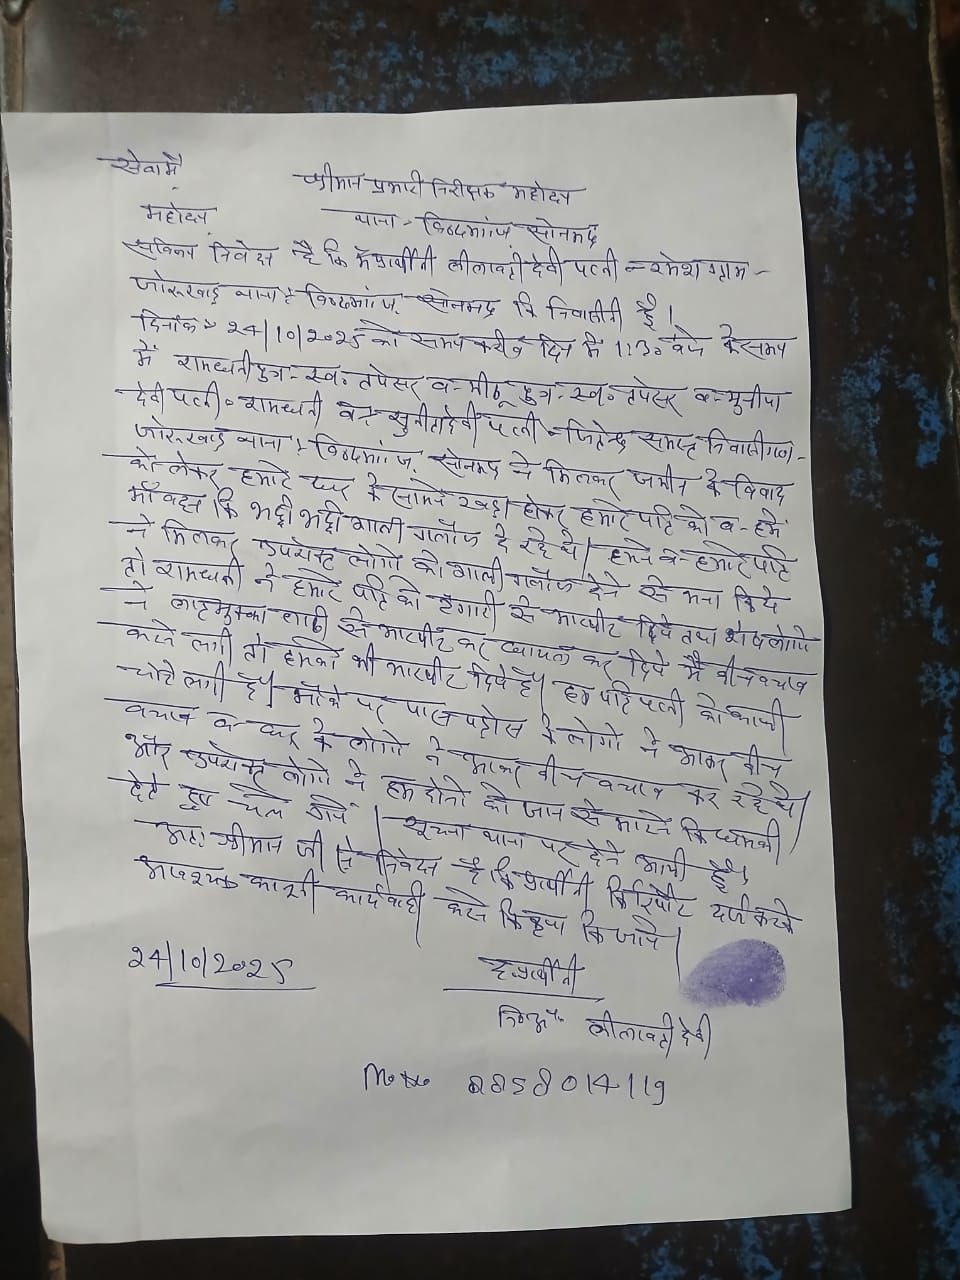 सेवामें
श्रीमान प्रभारी निरीक्षक महोदय
महोदय
थाना - विण्ढमगंज सोनभद्र
सविनय निवेदन है कि मैं प्रार्थीनी लीलावती देवी पत्नी - रमेश ग्राम -
जोरूखाड़ थाना - विण्ढमगंज, सोनभद्र कि निवासीनी है।
दिनांक 24/10/2025 को समय करीब दिन में 1:30 बजे के समय
में रामधनी पुत्र - स्व० तपेसर व - मीठू पुत्र - स्व० तपेसर व - मुनीया
देवी पत्नी - रामधनी व - सुनीता देवी पत्नी - जितेन्द्र समस्त निवासीगण -
जोरूखाड़ थाना - विण्ढमगंज, सोनभद्र ने मिलकर जमीन के विवाद
को लेकर हमारे घर के सामने खड़ा होकर हमारे पति को व - हमें
माँ बहन कि भद्दी भद्दी गाली गलौज दे रहे थे। हमने व - हमारे पति
ने मिलकर उपरोक्त लोगो को गाली गलौज देने से मना किये
तो रामधनी ने हमारे पति को टंगारी से मारपीट दिये तथा शेष लोगो
ने लात मुक्का लाठी से मारपीट कर घायल कर दिये मैं बीच बचाव
करने लगी तो हमको भी मारपीट दिये है। हम पति पत्नी को काफी
चोटे लगी है। मौके पर पास पड़ोस के लोगो ने आकर बीच
बचाव व घर के लोगो ने आकर बीच बचाव कर रहे थे।
और उपरोक्त लोगो ने हम दोनो को जान से मारने कि धमकी
देते हुए चले गये। सूचना थाना पर देने आयी है।
अतः श्रीमान जी से निवेदन है कि प्रार्थीनी कि रिपोर्ट दर्ज करके
आवश्यक कानूनी कार्यवाही करने कि कृपा कि जाये।
24/10/2025
ह० प्रार्थीनी
नि०अं० लीलावती देवी
M. No